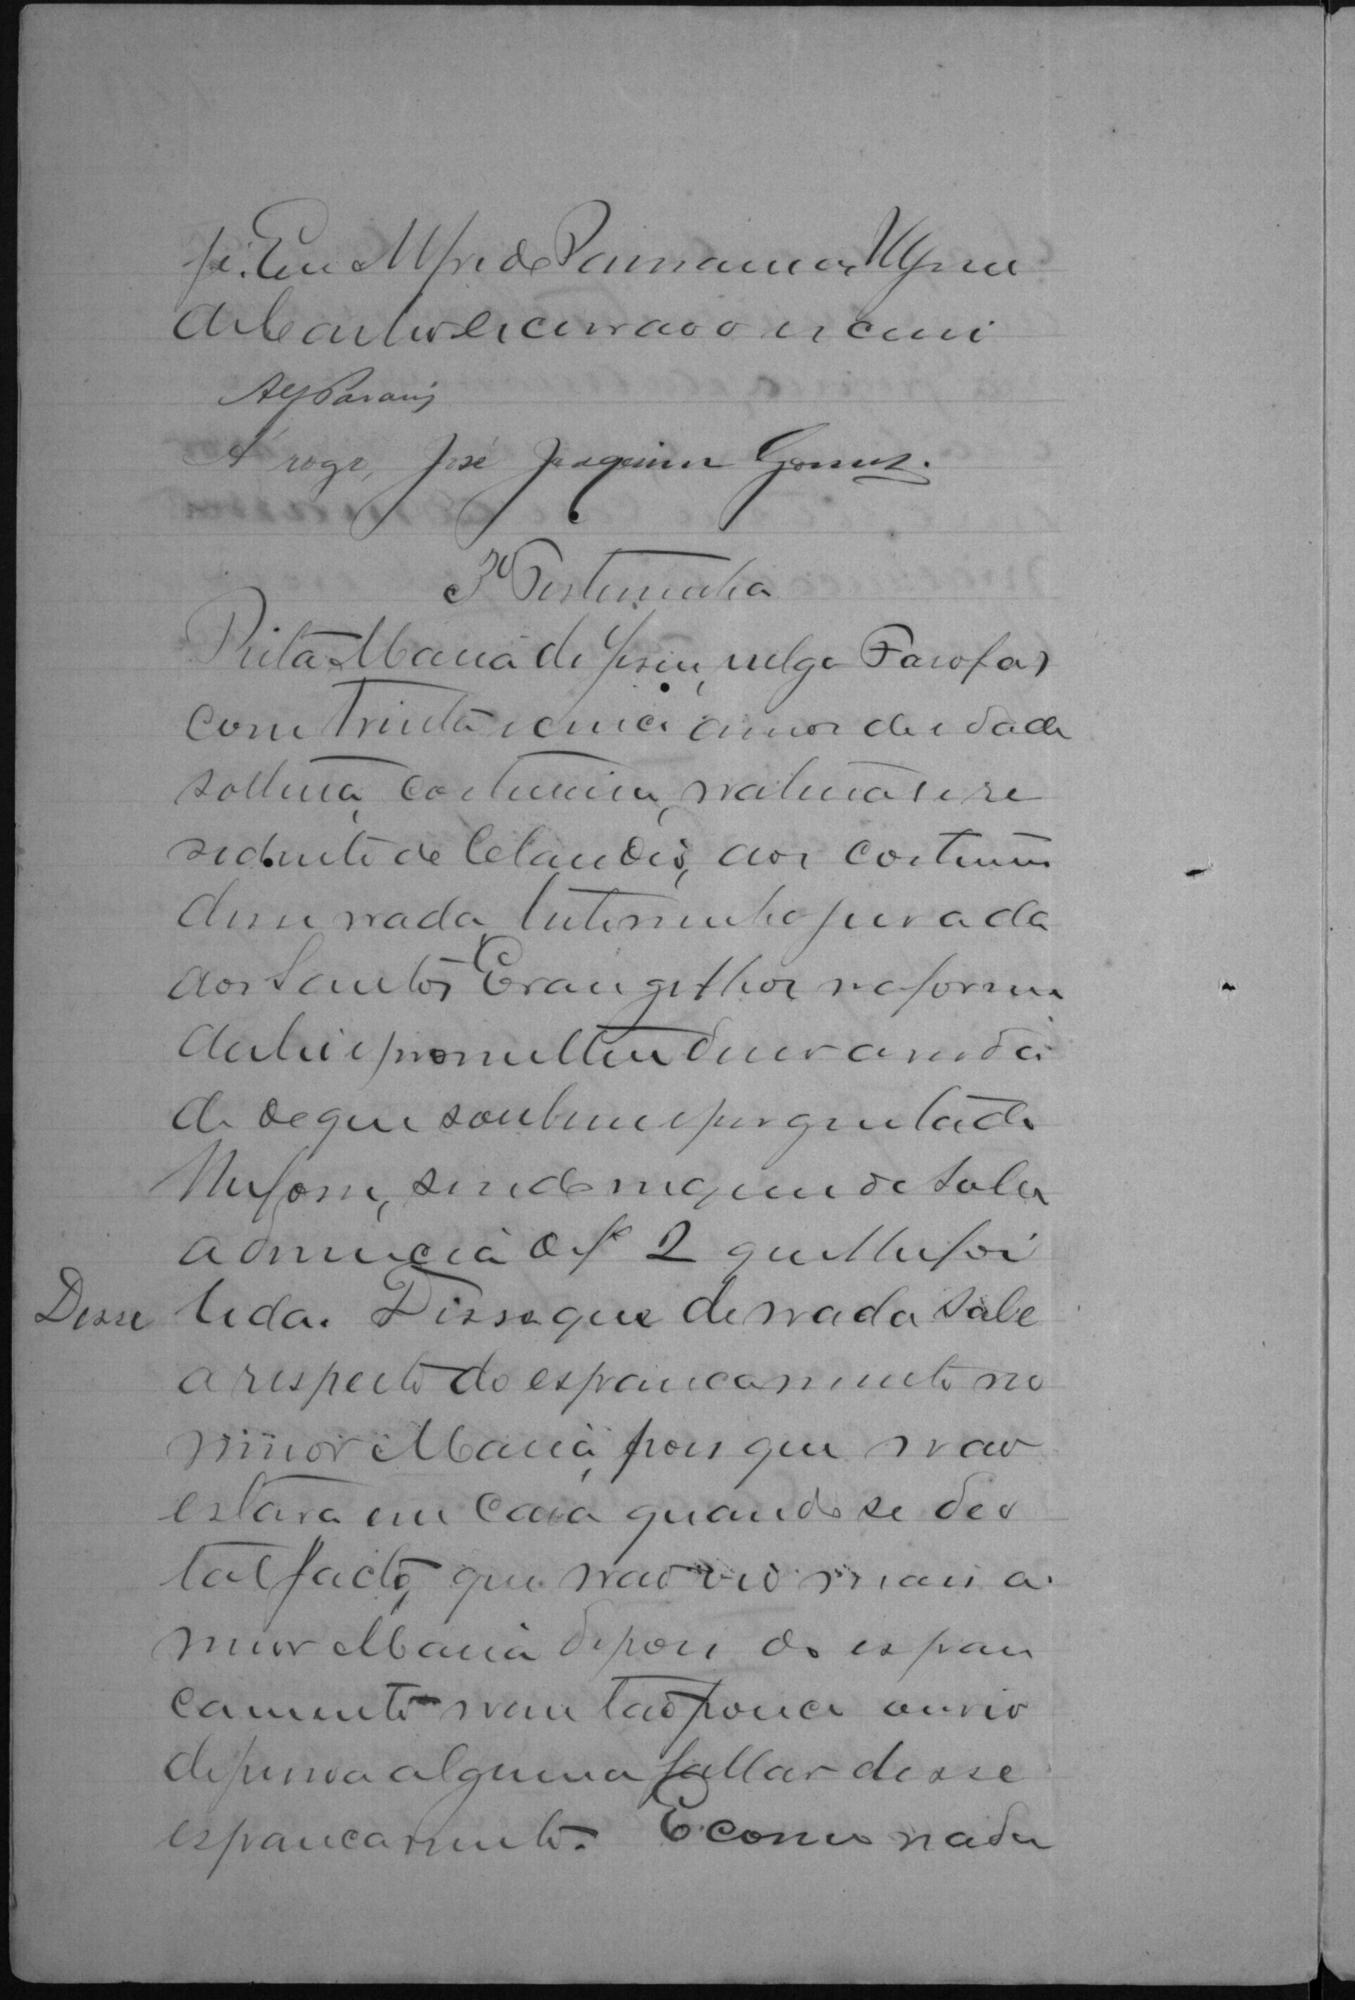 fé. Eu Alfredo
de Castro escrivão o escrevi
A rogo, José Joaquim Gomes.
3ª Testemunha
Rita Maria de Jesus, vulgo Farofa,
com trinta e cinco annos de edade
solteira, costureira, natural e re
sidente de aos costumes
disse nada, testemunha jurada
aos Santos Evangelhos na forma
da lei e prometteu dizer a verda
de do que soubesse e perguntado
lhe fosse, sendo inquerida sobre
a denuncia de fs 2 que lhe foi
Disse lida. Disse que de nada sabe
a respeito do espancamento no
minor Maria, pois que não
estava em casa quando se deo
tal facto, que não vio mais a
menor Maria depois do espan
camento nem tão pouco ouvio
de pessoa alguma fallar desse
espancamento. E como nada